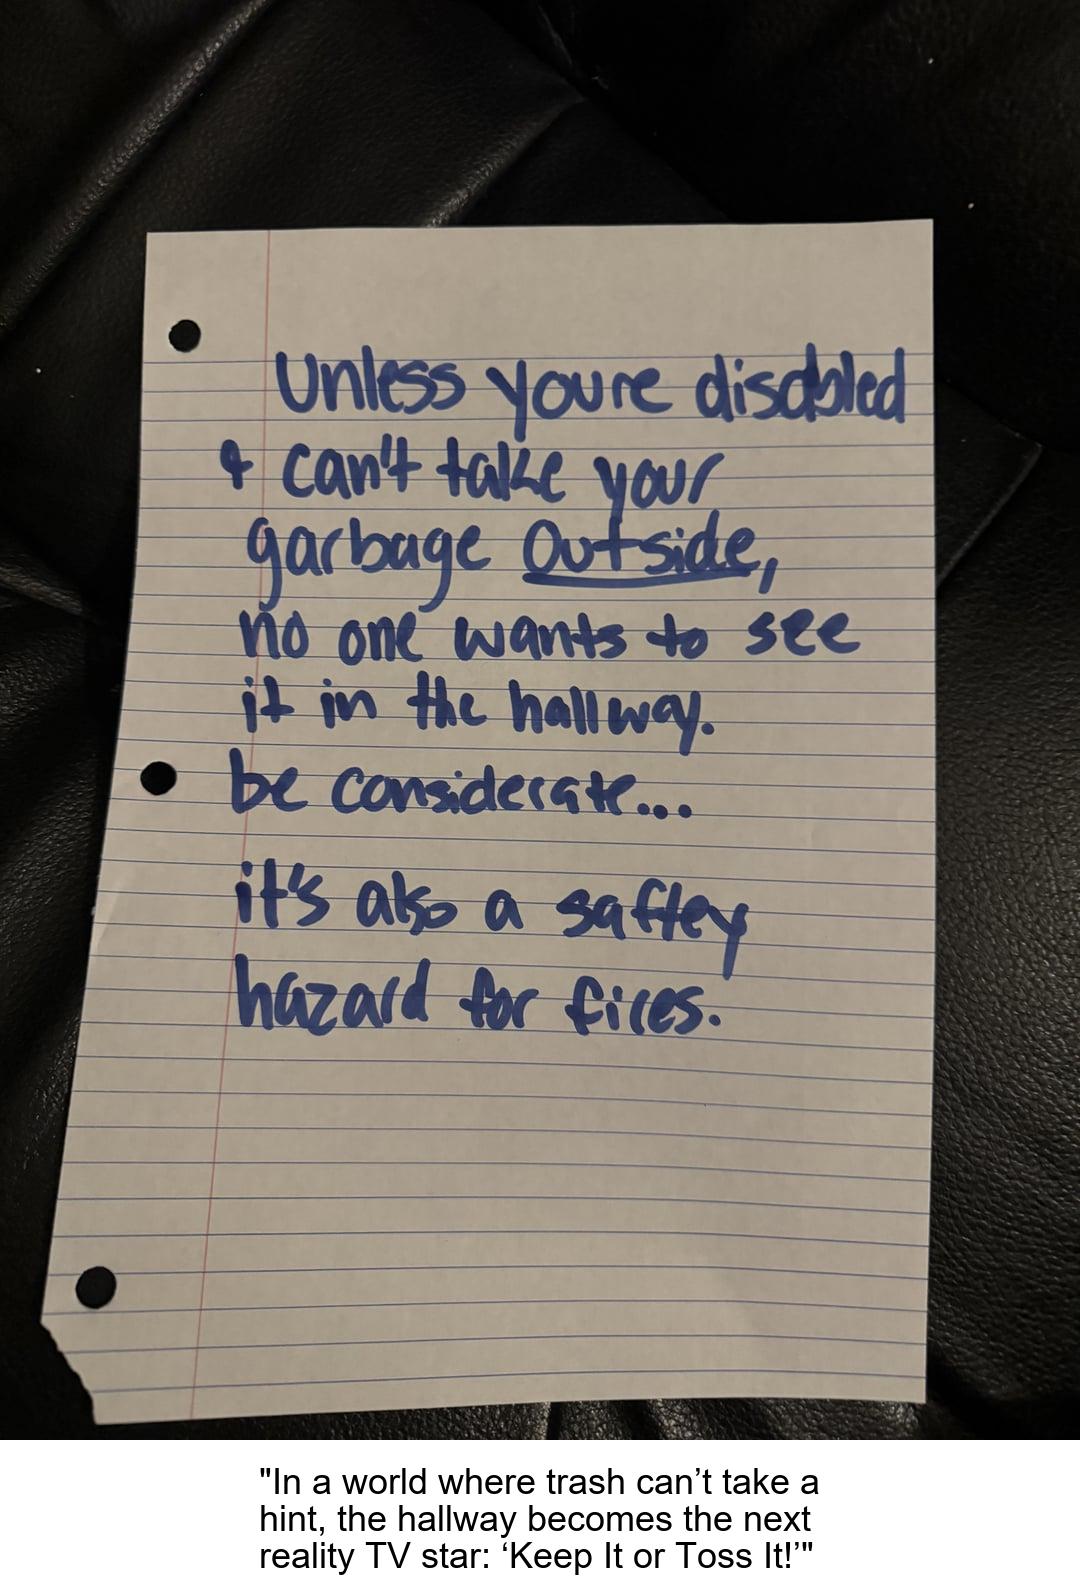 Unless youre disabled
& can't take your
garbage outside,
no one wants to see
it in the hallway.
be considerate...
it's also a saftey
hazard for fires.
"In a world where trash can’t take a
hint, the hallway becomes the next
reality TV star: ‘Keep It or Toss It!’"